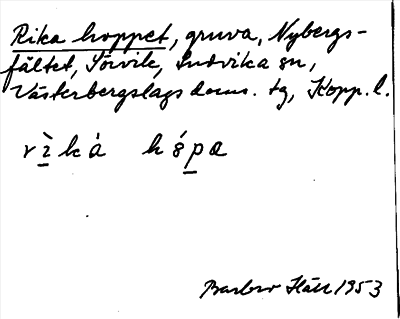 Rika hoppet, gruva, Nybergs-
fältet, Sörvik, Ludvika sn,
Västerbergslags doms. tg, Kopp. l.
rìkà hópa
1953